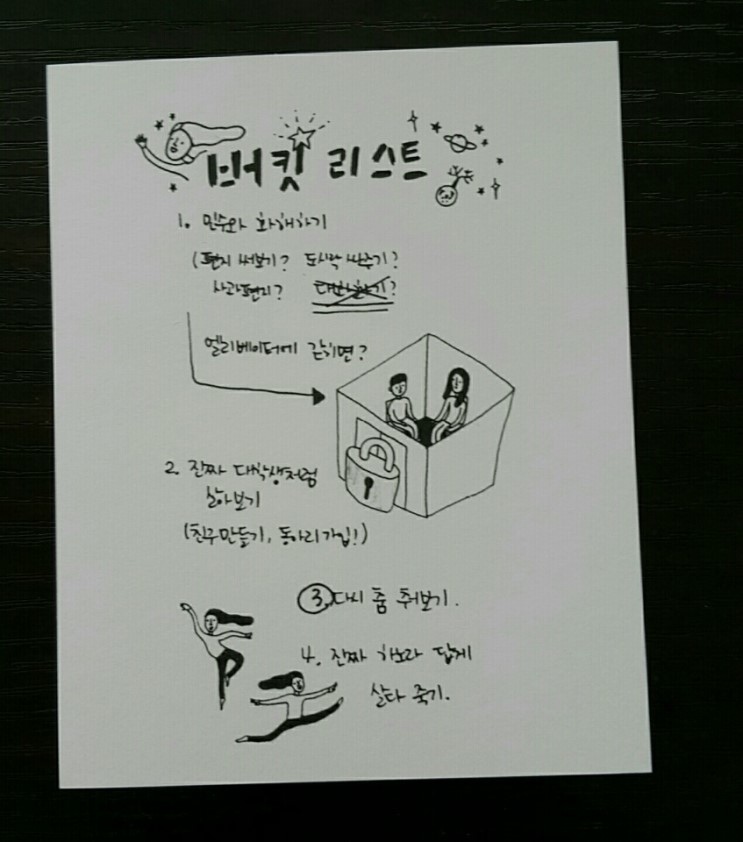 버킷 리스트
1. 민수와 화해하기
(편지 써보기? 도시락 싸주기?
사과편지?
엘리베이터에 갇히면?
2. 진짜 대학생처럼
살아보기
(친구만들기, 동아리가입!)
3. 다시 춤 춰보기.
4. 진짜 하노라 답게
살다 죽기.